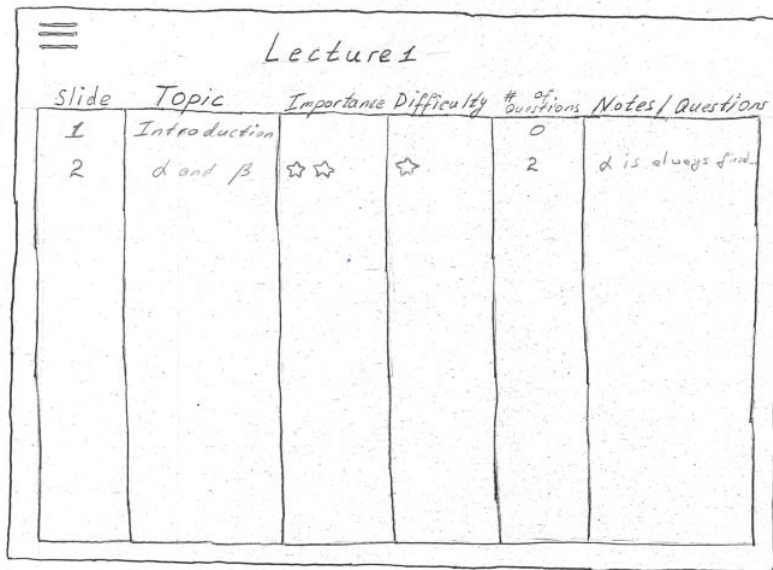 Lecture 1
Slide Topic Importance Difficulty # of Questions Notes/Questions
1 Introduction 0
2 α and β ☆☆ ☆ 2 α is always